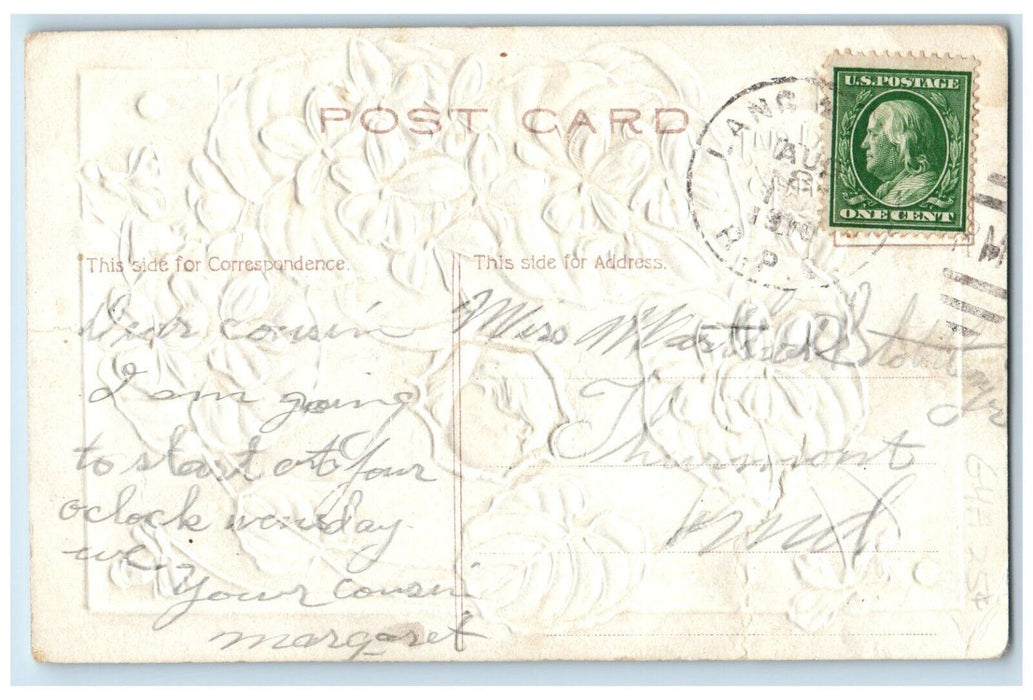 POST CARD
U.S. POSTAGE
ONE CENT
LANC
AUG
1910
R.P.O.
This side for Correspondence.
This side for Address.
Dear cousin
I am going
to start at four
oclock wensday
eve.
Your cousin
margaret
Miss
Thurmont
md.